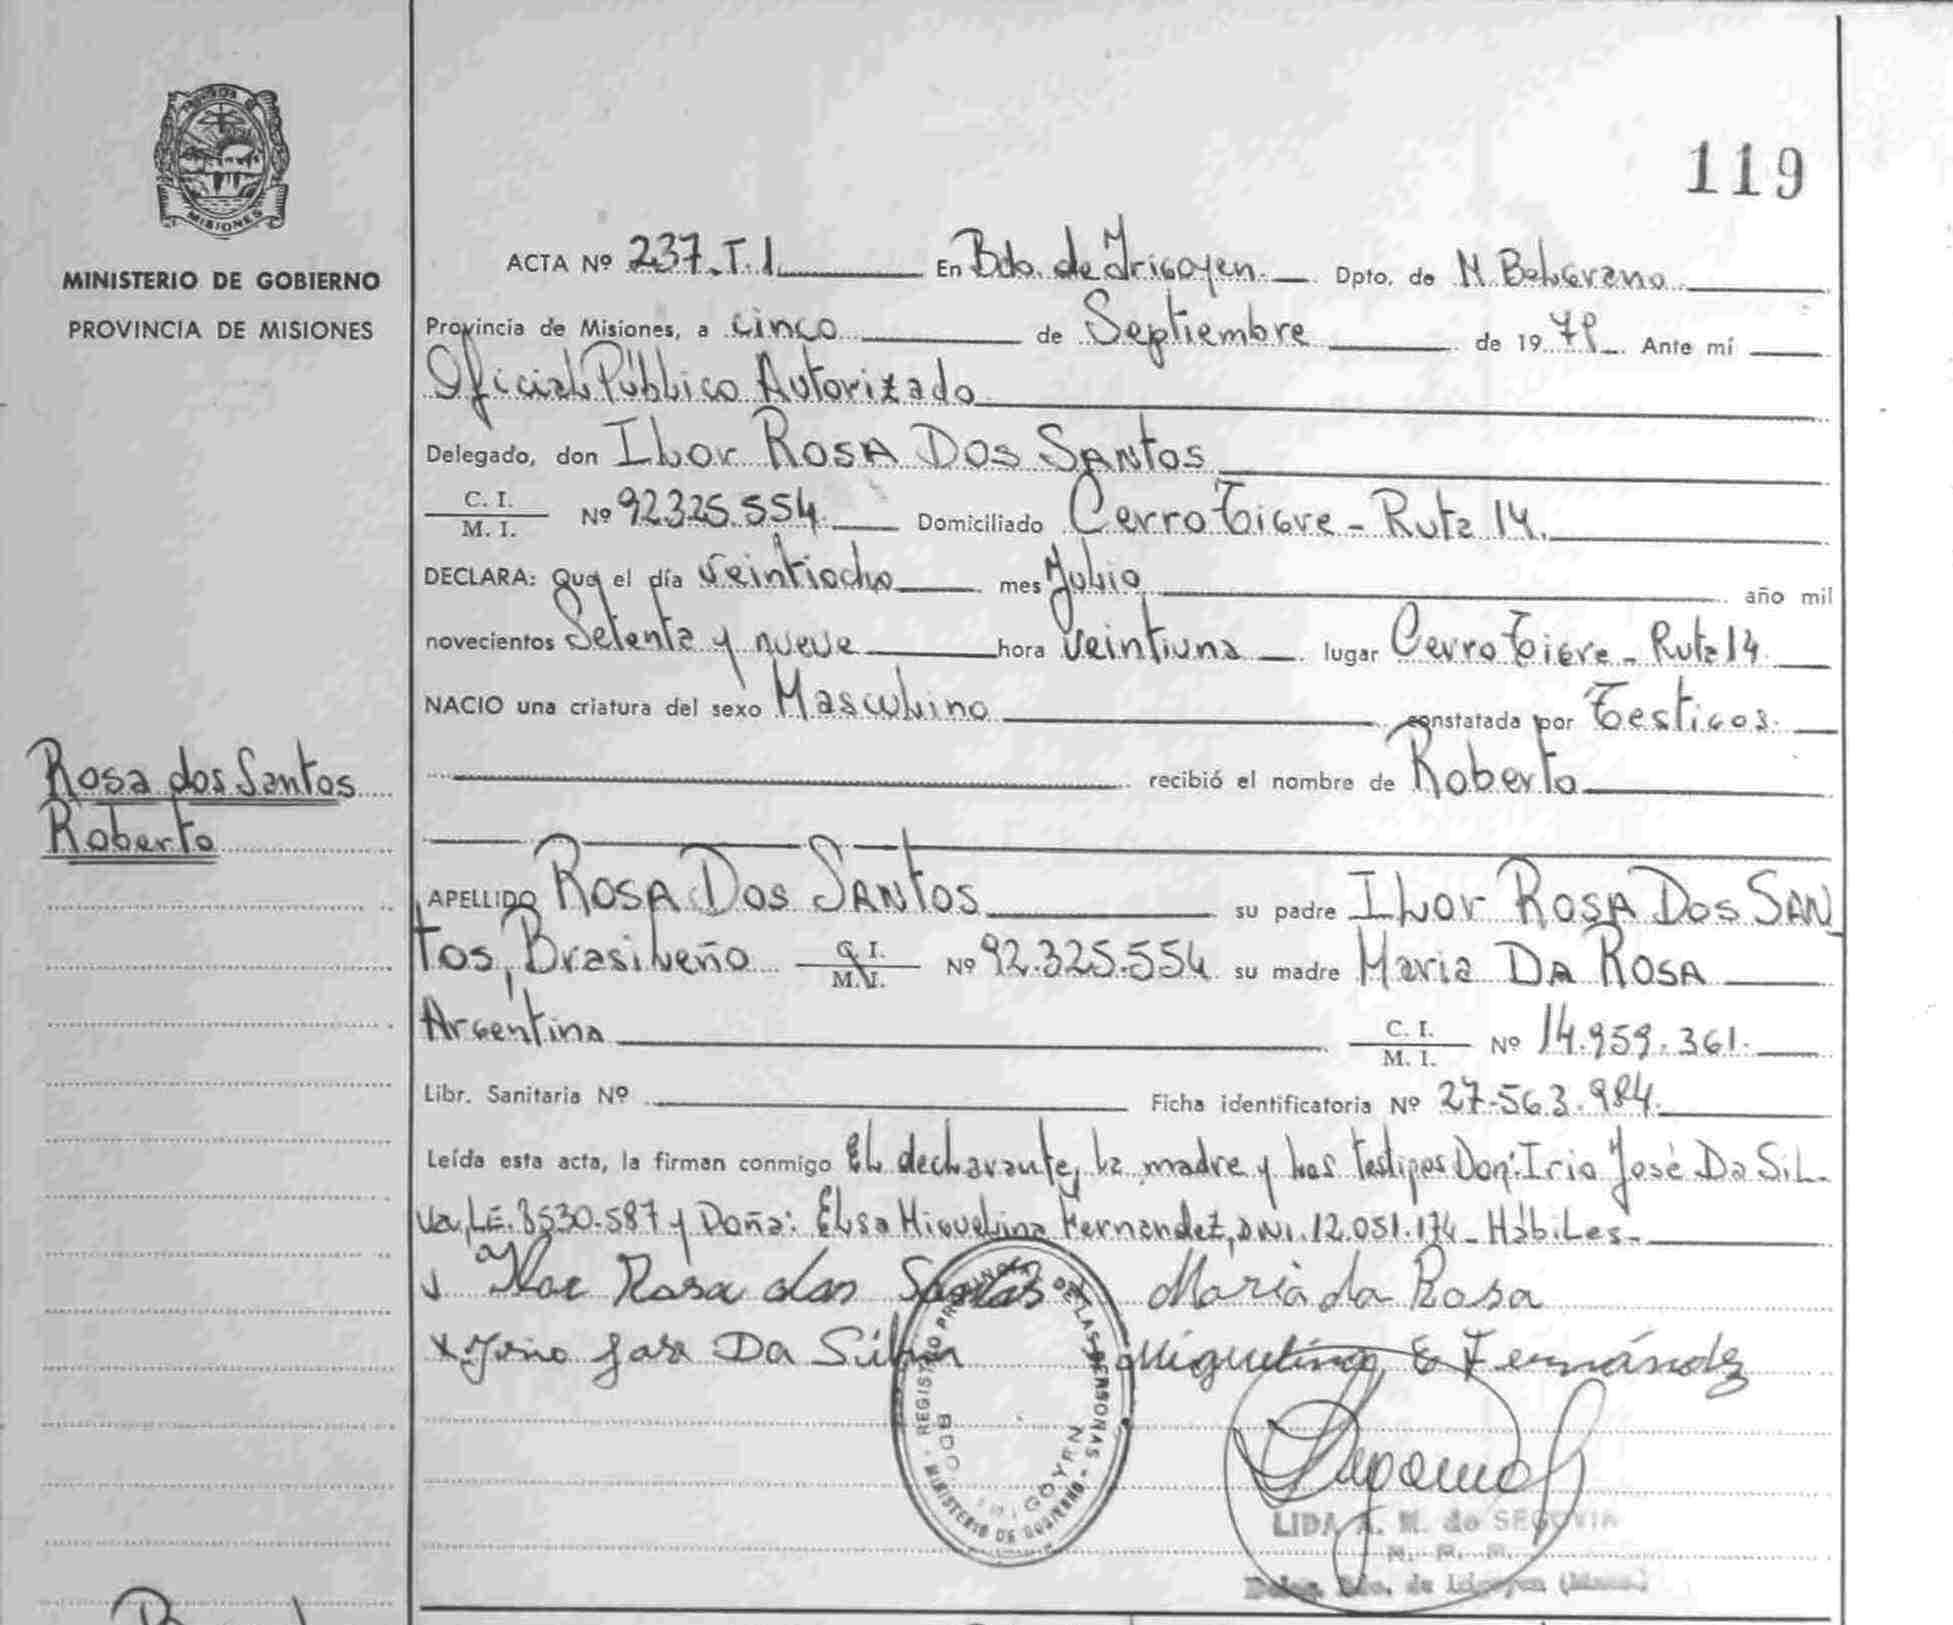 119
MISIONES
MINISTERIO DE GOBIERNO
PROVINCIA DE MISIONES
ACTA Nº 237. T. I. En Bdo. de Irigoyen Dpto. de M. Belgrano
Provincia de Misiones, a cinco de Septiembre de 1979 Ante mí
Oficial Público Autorizado
Delegado, don Ilor ROSA DOS SANTOS
C. I.
M. I. Nº 92.325.554. Domiciliado Cerro Tigre - Ruta 14.
DECLARA: Que el día veintiocho mes Julio año mil
novecientos Setenta y nueve hora veintiuna lugar Cerro Tigre - Ruta 14
NACIO una criatura del sexo Masculino constatada por Testigos.
recibió el nombre de Roberto
Rosa dos Santos
Roberto
APELLIDO ROSA DOS SANTOS su padre Ilor ROSA DOS SAN
TOS, Brasileño C. I. M. I. Nº 92.325.554 su madre Maria DA ROSA
Argentina C. I. M. I. Nº 14.959.361.
Libr. Sanitaria Nº Ficha identificatoria Nº 27.563.984.
Leída esta acta, la firman conmigo El declarante, la madre y los testigos Don: Irio José Da Sil-
va, LE. 8530.587 y Doña: Elsa Miguelina Fernandez, DNI. 12.051.174 - Hábiles -
Ilor Rosa dos Santos Maria da Rosa
x Irio Jose Da Silva Miguelina E Fernández
REGISTRO PROVINCIAL DE LAS PERSONAS
BDO. IRIGOYEN
MINISTERIO DE GOBIERNO
LIDA A. M. de SEGOVIA
Deleg. Bdo. de Irigoyen (Mnes.)